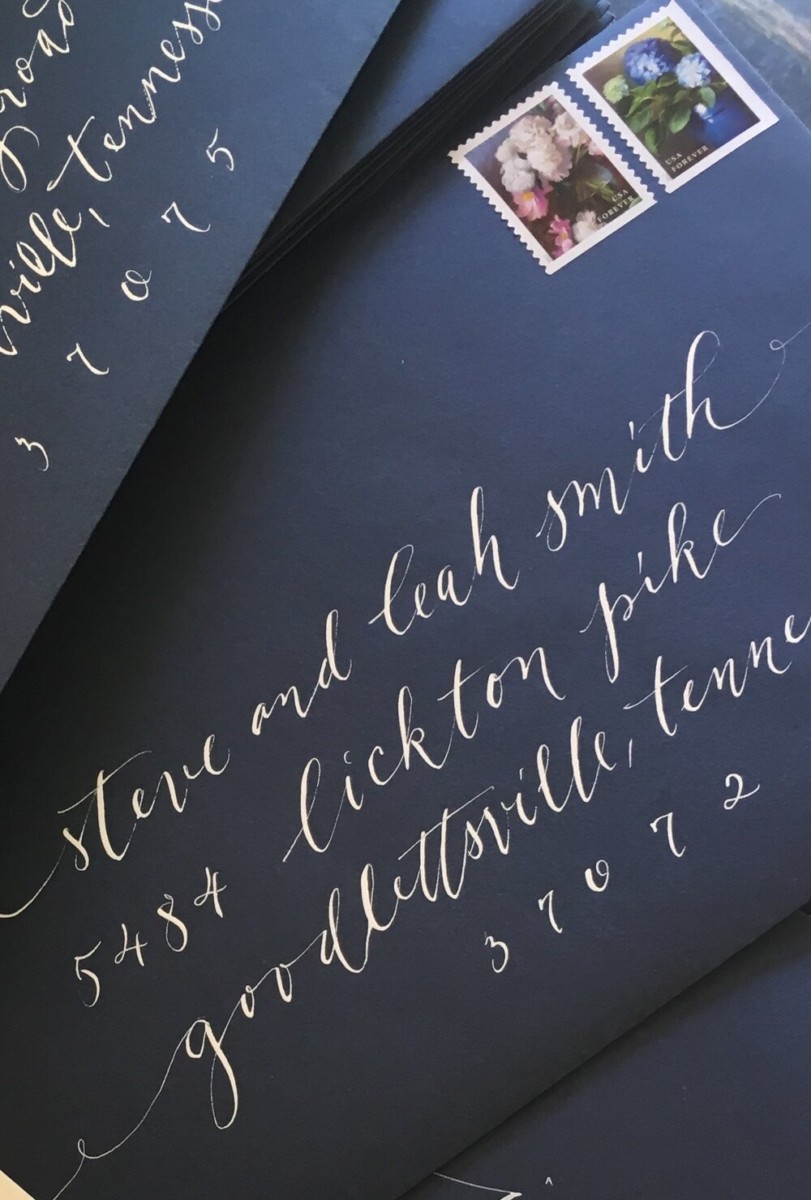 road
ville, tenness
3 7 0 7 5
USA
FOREVER
USA
FOREVER
steve and leah smith
5484 lickton pike
goodlettsville, tenne
3 7 0 7 2